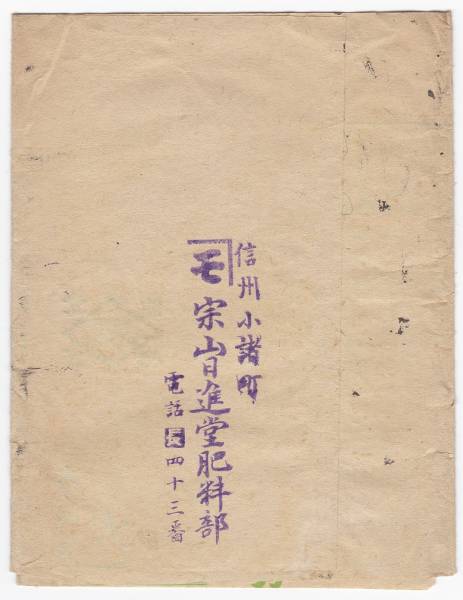 信州小諸町
モ 宗山日進堂肥料部
電話長四十三番